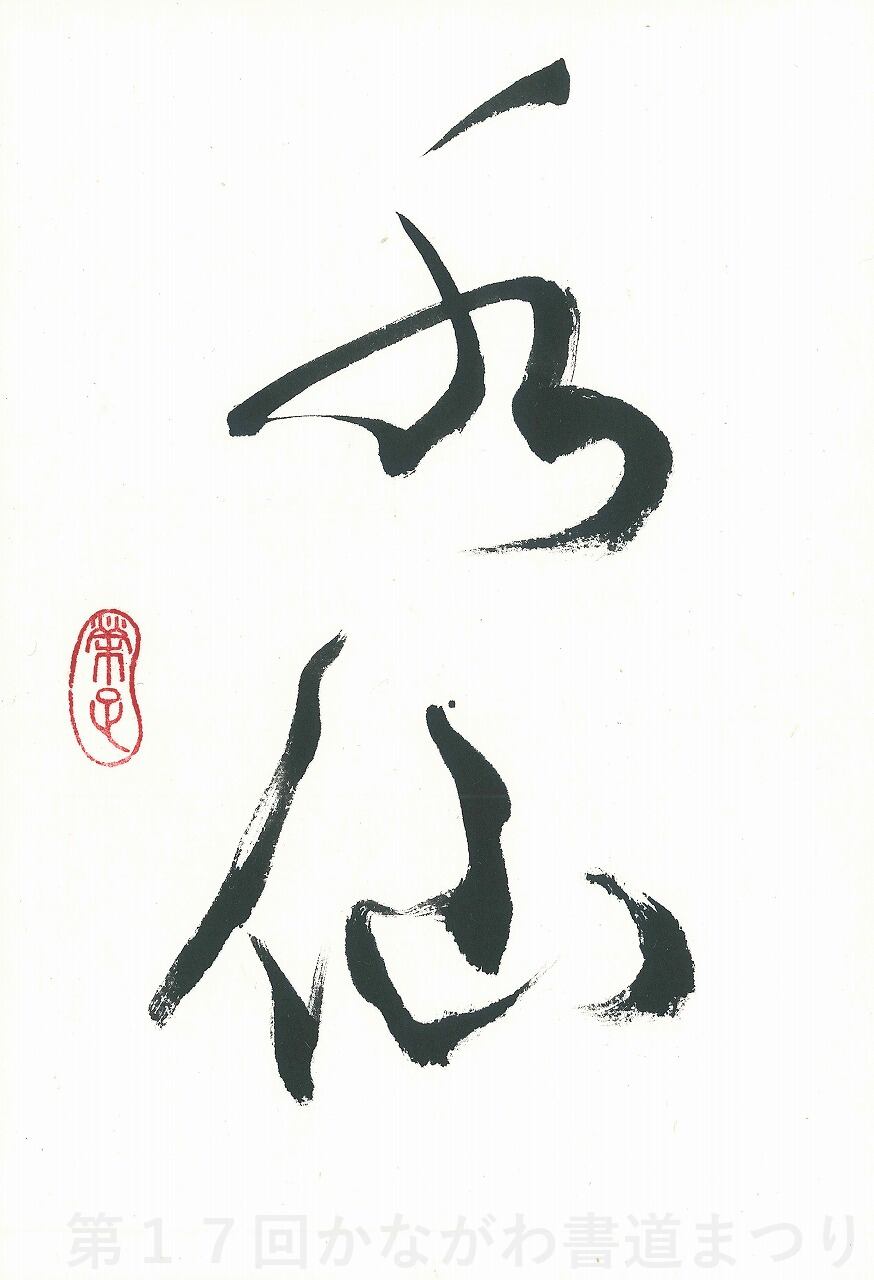 秀仙
第17回かながわ書道まつり